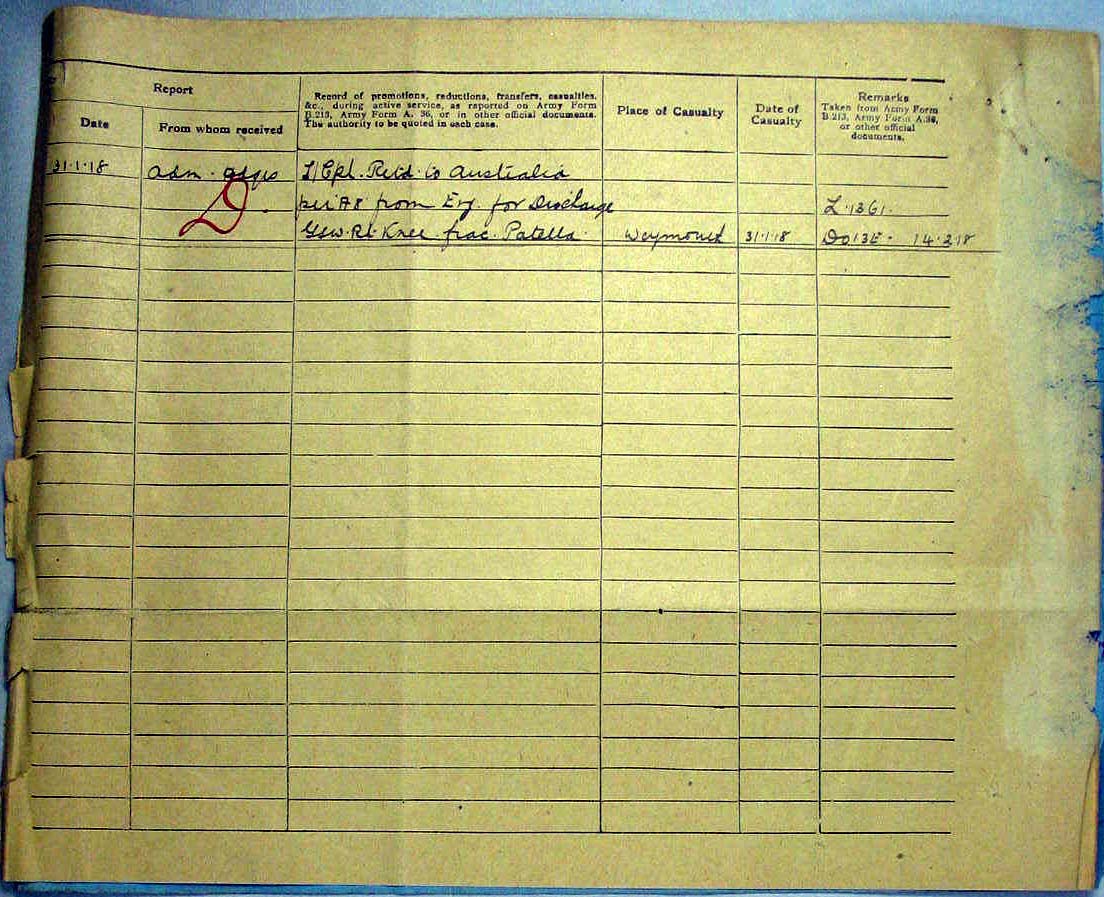 Report
Date
From whom received
Record of promotions, reductions, transfers, casualties,
&c., during active service, as reported on Army Form
B.213, Army Form A. 36, or in other official documents.
The authority to be quoted in each case.
Place of Casualty
Date of
Casualty
Remarks
Taken from Army Form
B.213, Army Form A.36,
or other official
documents.
31·1·18 Adm. Hdqrs L/Cpl. Retd. to Australia
D. per A8 from Eng. for Discharge L.1361.
Gsw. Rt. Knee frac. Patella. Weymouth 31·1·18 Do 13E - 14·2·18